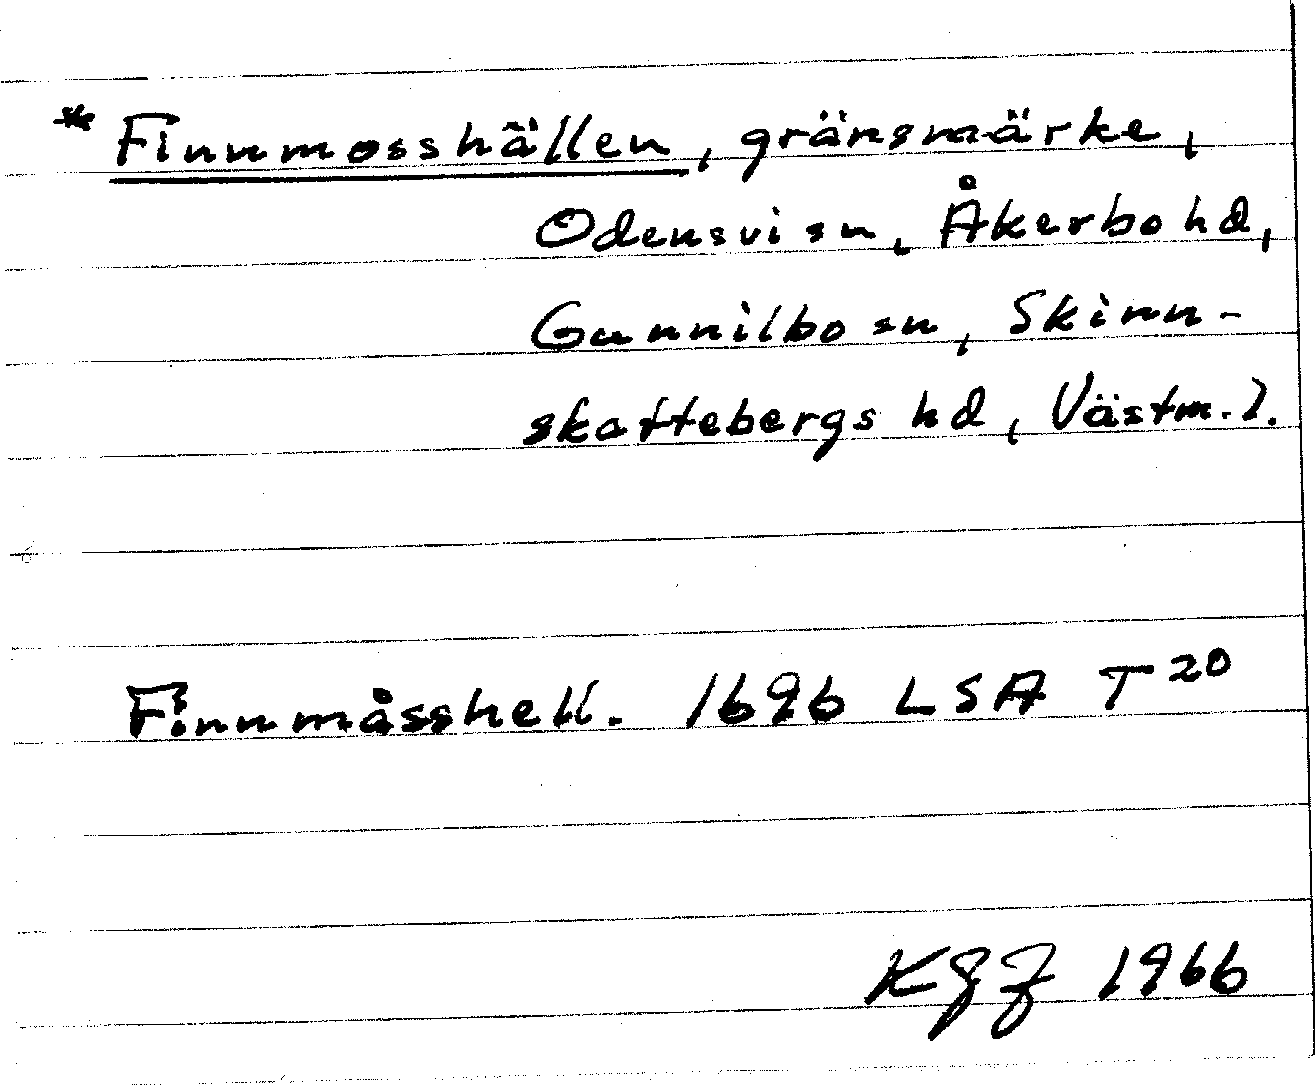 * Finnmosshällen, gränsmärke,
Odensvi sn, Åkerbo hd,
Gunnilbo sn, Skinn-
skattebergs hd, Västm. l.
Finnmåsshell. 1696 LSA T 20
KGJ 1966